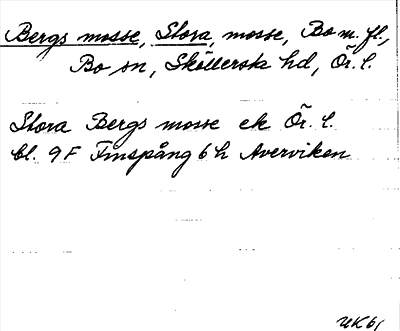 Bergs mosse, Stora, mosse, Bo m. fl.,
Bo sn, Sköllersta hd, Ör. l.
Stora Bergs mosse ek Ör. l.
bl. 9F Finspång 6 h Averviken
UK 61